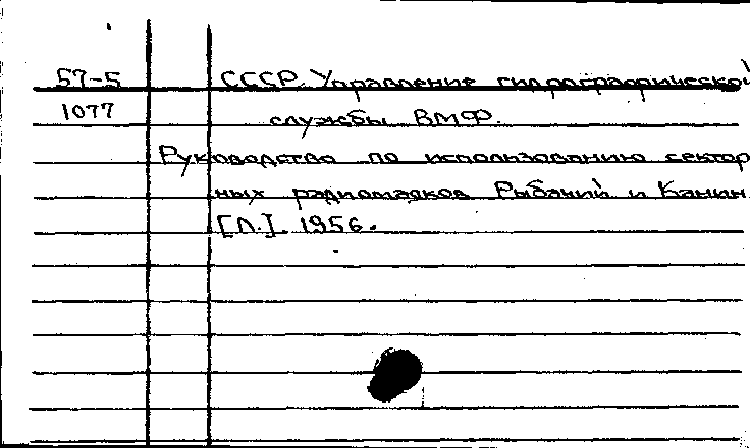 57-5 СССР. Управление гидрографической
1077 службы ВМФ.
Руководство по использованию сектор
ных радиомаяков Рыбачий и Канин
[Л.]. 1956.